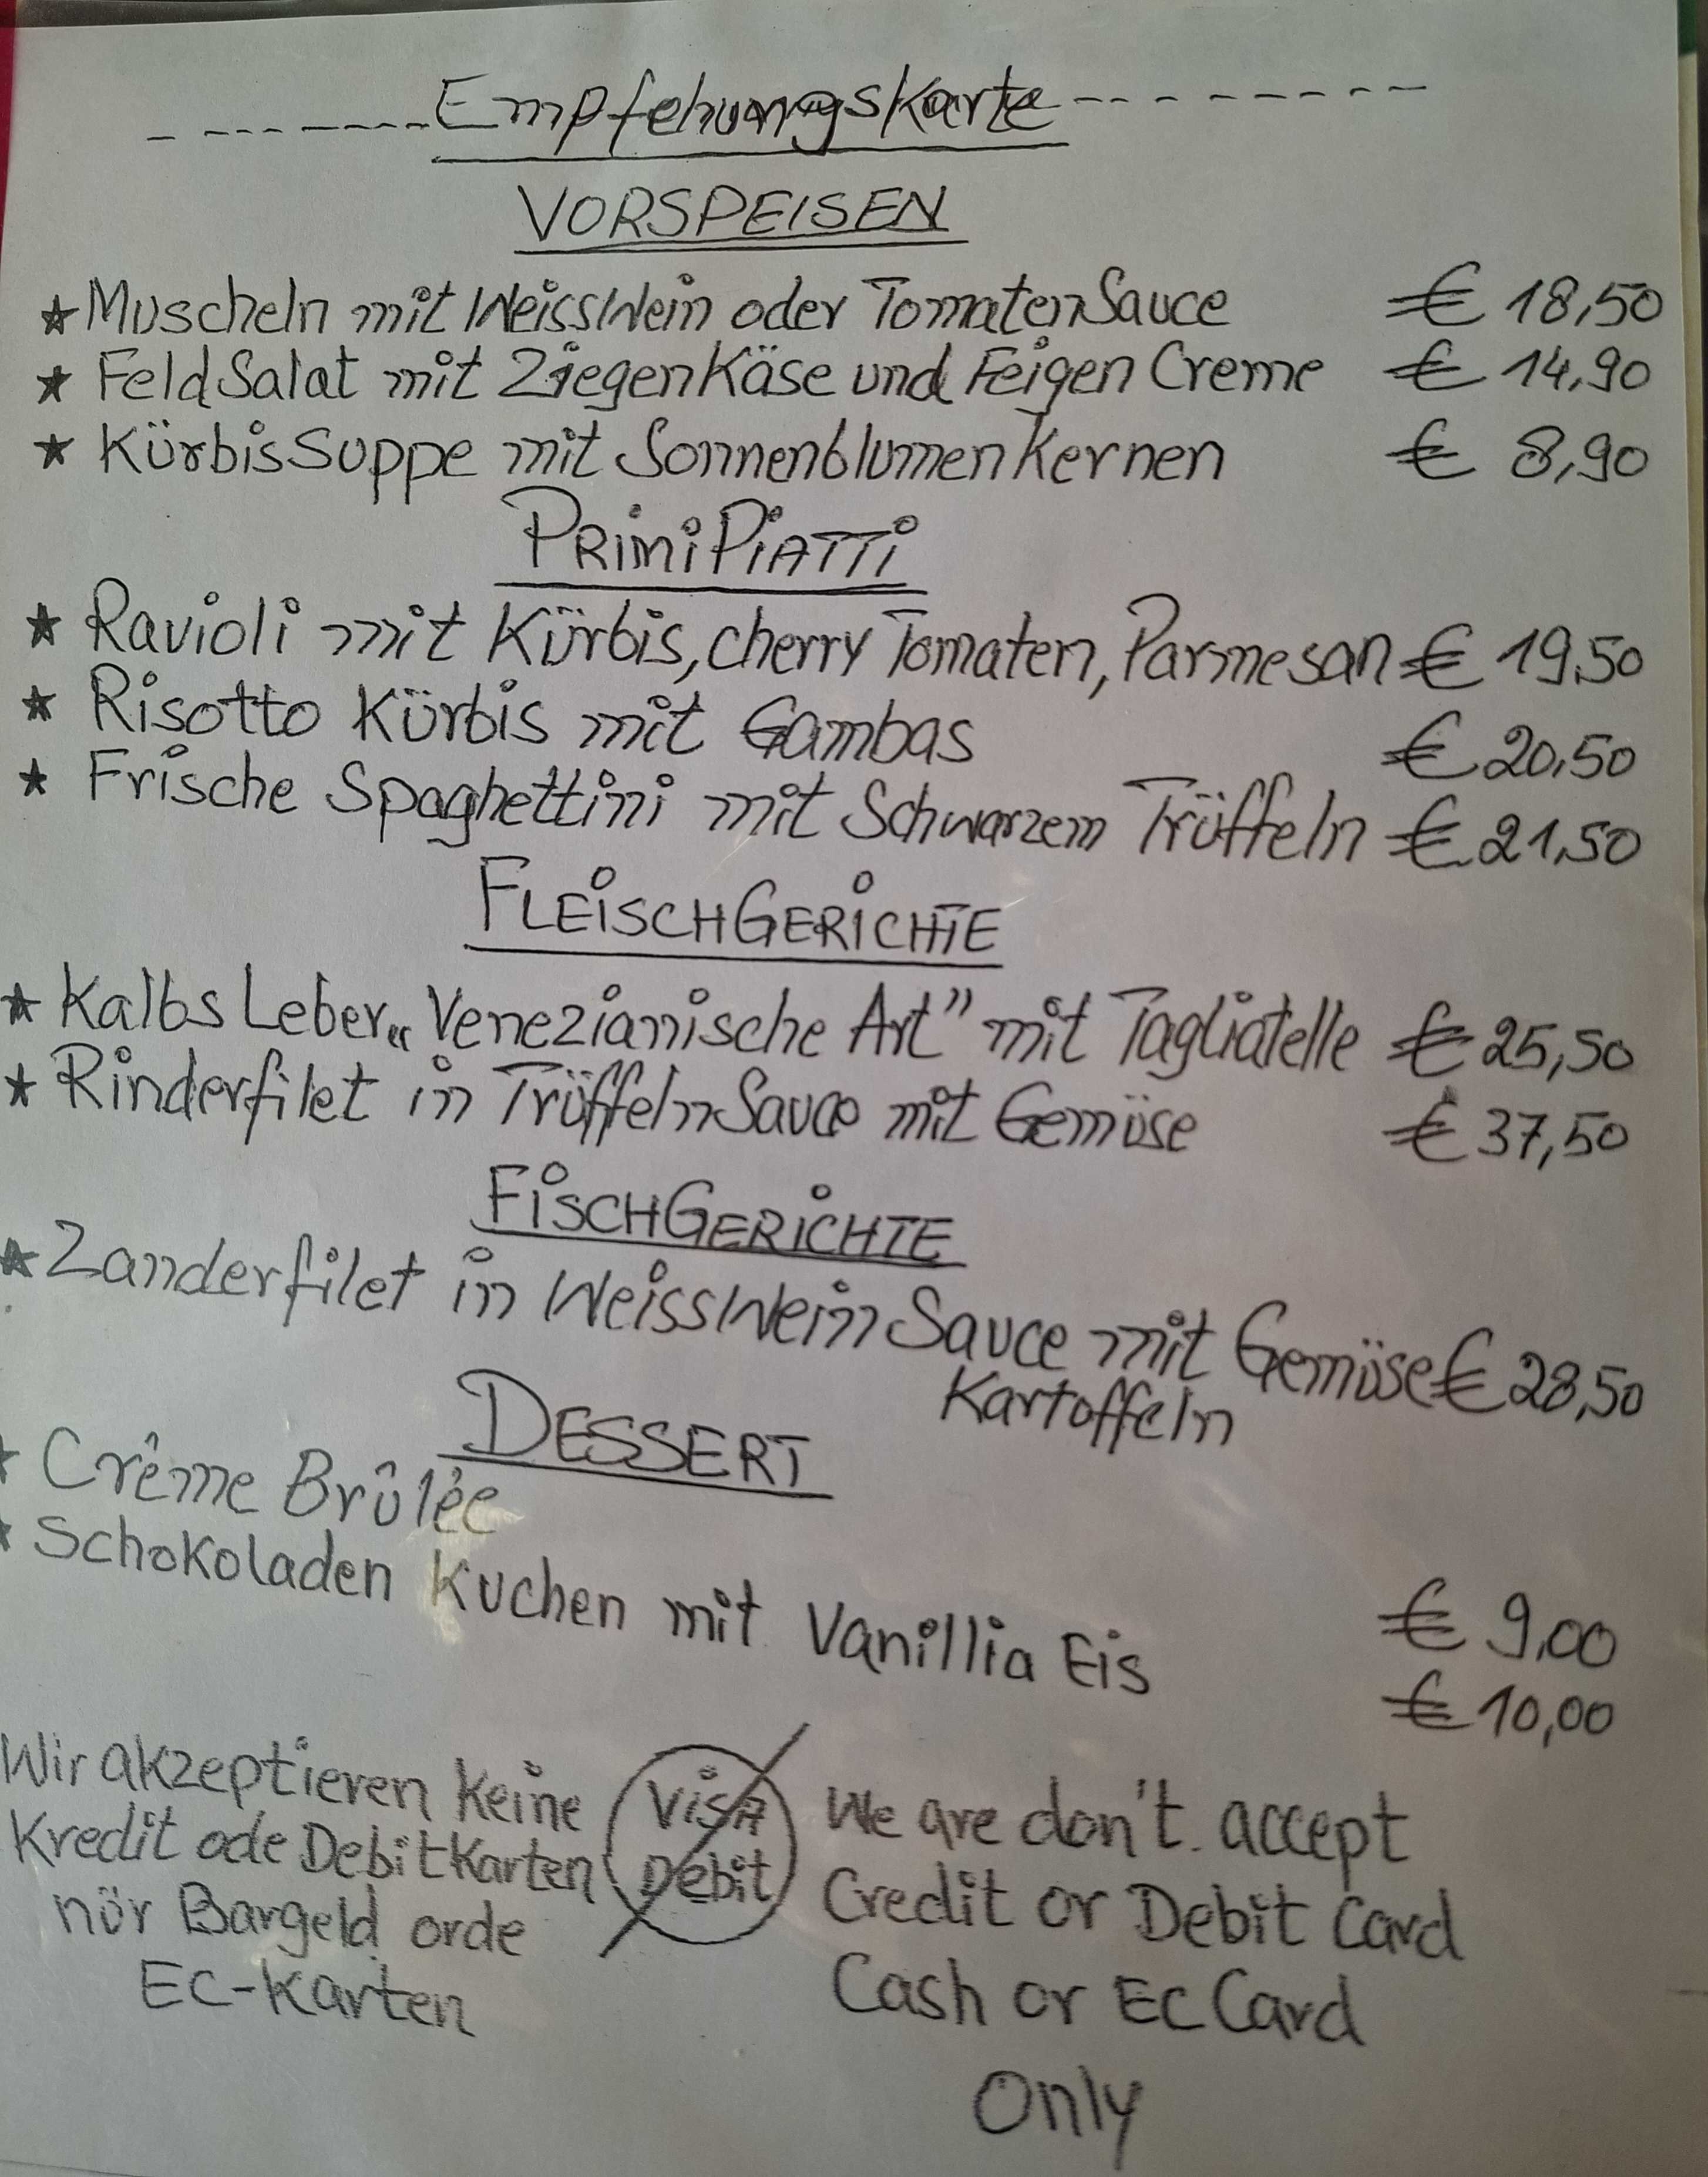 Empfehungskarte
VORSPEISEN
★ Muscheln mit Weisswein oder TomatenSauce € 18,50
★ FeldSalat mit ZiegenKäse und Feigen Creme € 14,90
★ KürbisSuppe mit SonnenblumenKernen € 8,90
PRIMI PIATTI
★ Ravioli mit Kürbis, cherry Tomaten, Parmesan € 19,50
★ Risotto Kürbis mit Gambas € 20,50
★ Frische Spaghettini mit Schwarzem Trüffeln € 21,50
FLEISCHGERICHTE
★ Kalbs Leber „Venezianische Art” mit Tagliatelle € 25,50
★ Rinderfilet in TrüffelnSauce mit Gemüse € 37,50
FISCHGERICHTE
★ Zanderfilet in Weisswein Sauce mit Gemüse € 28,50
Kartoffeln
DESSERT
★ Crême Brûlée
★ Schokoladen Kuchen mit Vanillia Eis
€ 9,00
€ 10,00
Wir akzeptieren Keine
Kredit ode DebitKarten
nür Bargeld orde
EC-Karten
VISA
Debit
We are don't. accept
Credit or Debit Card
Cash or EC Card
Only